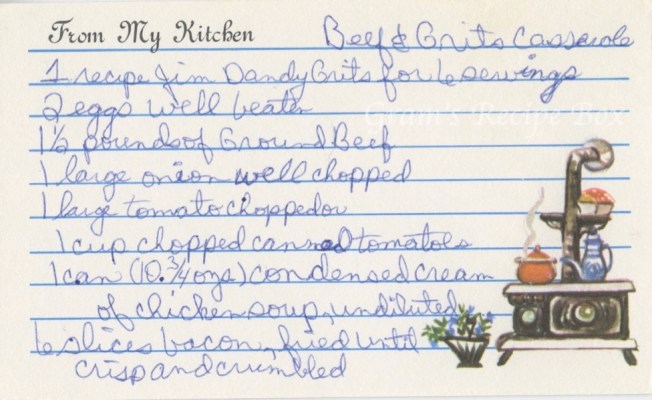 From My Kitchen
Beef & Grits Casserole
1 recipe Jim Dandy Grits for 6 servings
2 eggs well beaten
Gram's Recipe Box
1½ pounds of Ground Beef
1 large onion well chopped
1 large tomato chopped or
1 cup chopped canned tomatoes
1 can (10.¾ ozs) condensed cream
of chicken soup, undiluted
6 slices bacon, fried until
crisp and crumbled